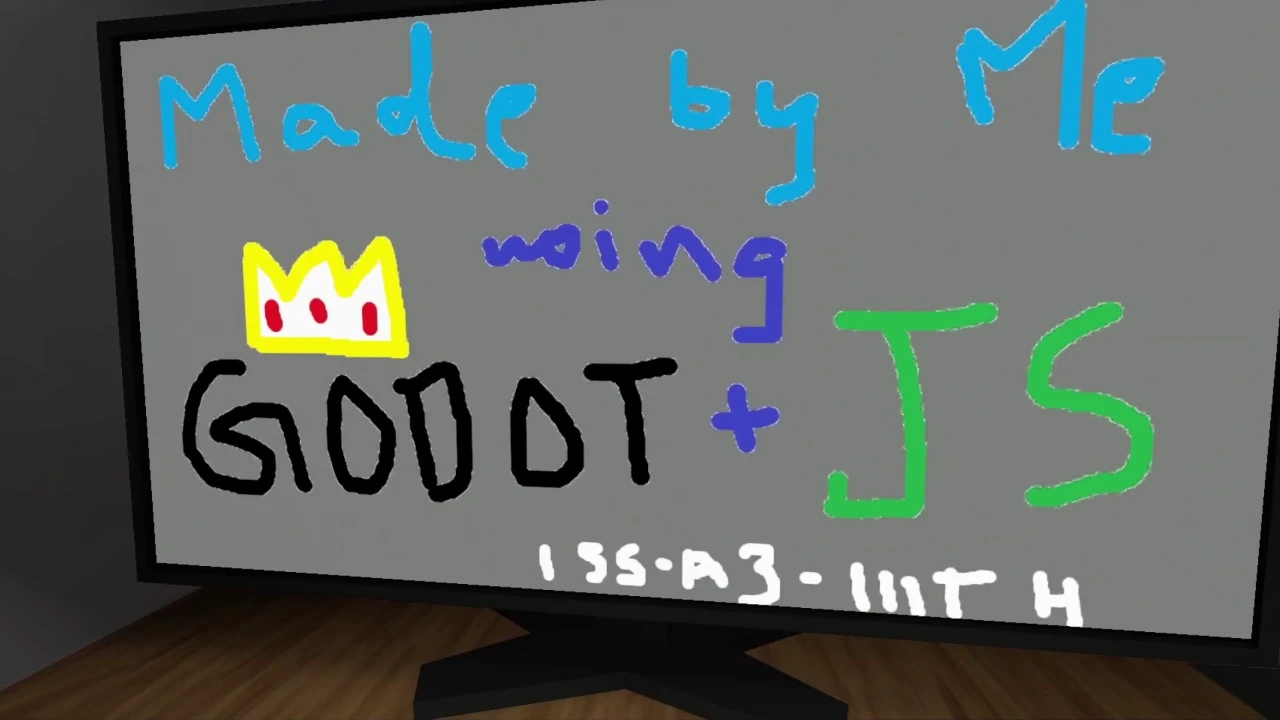 Made by Me
using
GODOT + JS
ISS-A3-IIIT H